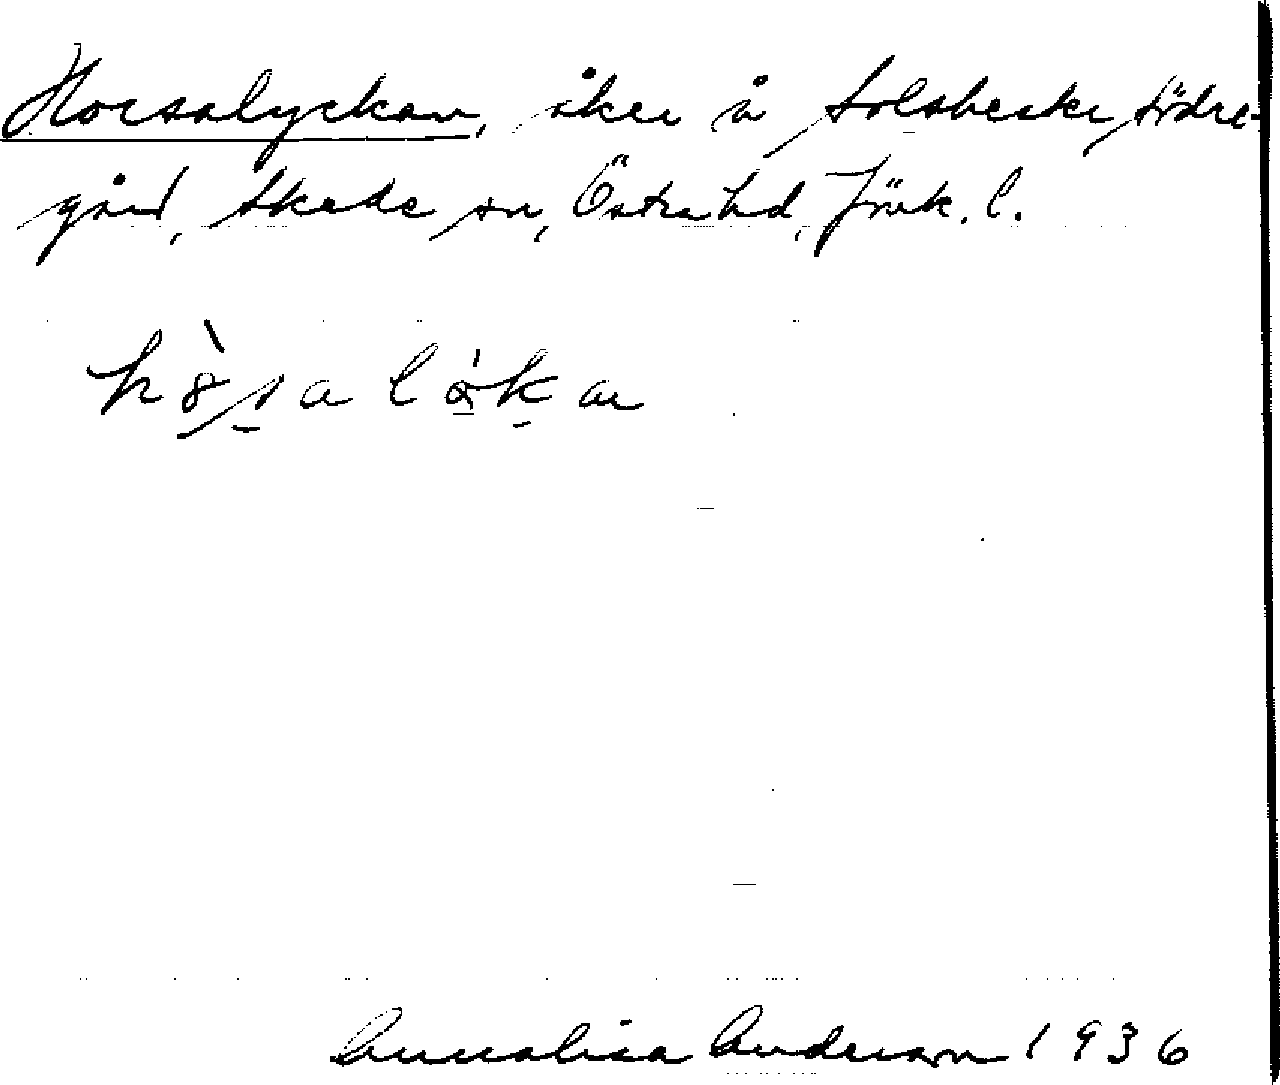 Horsalyckan, åker å Solsberke, södre-
gård, Skede sn, Östra hd, Jönk. l.
Annalisa Anderson 1936